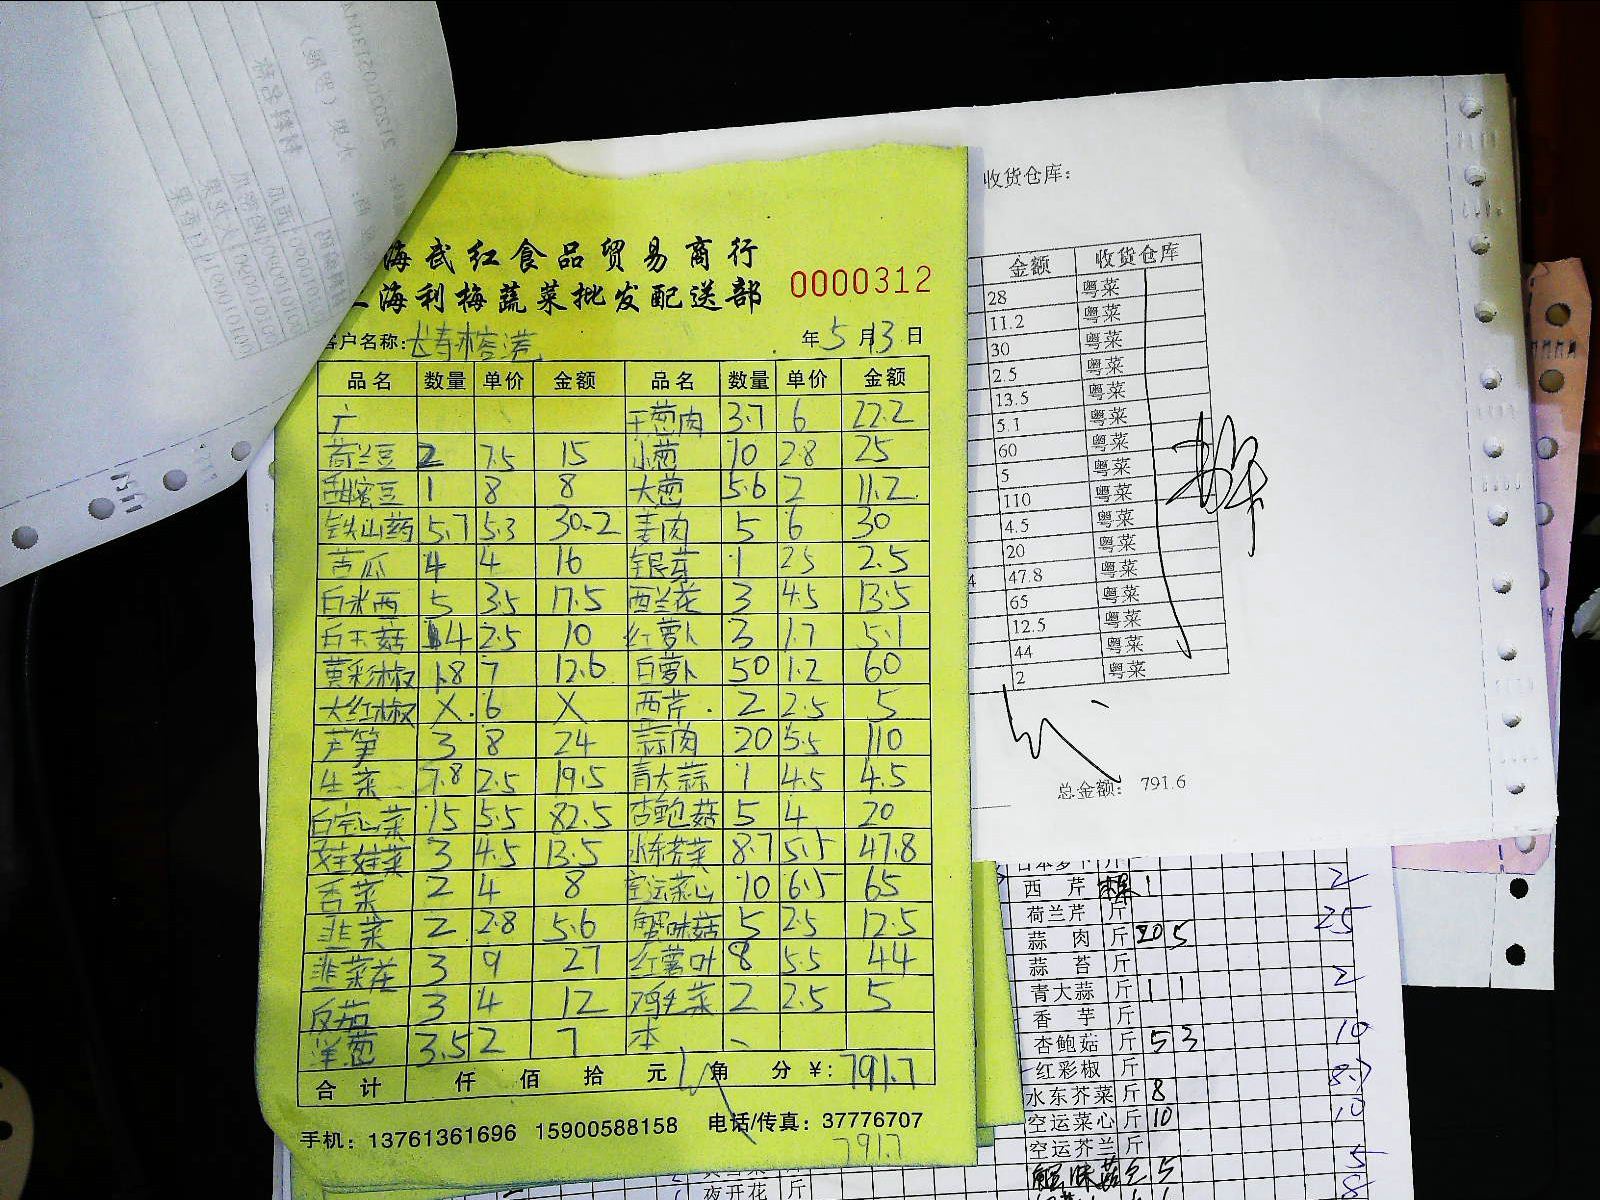 海武红食品贸易商行
上海利梅蔬菜批发配送部 0000312
客户名称: 年 5 月 13 日
品名 数量 单价 金额 品名 数量 单价 金额
干葱肉 3.7 6 22.2
荷兰豆 2 7.5 15 小葱 10 2.8 25
甜蜜豆 1 8 8 大葱 5.6 2 11.2
铁山药 5.7 5.3 30.2 姜肉 5 6 30
苦瓜 4 4 16 银芽 1 25 2.5
白水西 5 3.5 17.5 西兰花 3 4.5 13.5
白玉菇 4 2.5 10 红萝卜 3 1.7 5.1
黄彩椒 1.8 7 12.6 白萝卜 50 1.2 60
大红椒 X 6 X 西芹 2 2.5 5
芦笋 3 8 24 蒜肉 20 5.5 110
生菜 7.8 2.5 19.5 青大蒜 1 4.5 4.5
15 5.5 82.5 杏鲍菇 5 4 20
娃娃菜 3 4.5 13.5 水东芥菜 8.7 5.5 47.8
香菜 2 4 8 空运菜心 10 6.5 65
韭菜 2 2.8 5.6 蟹味菇 5 2.5 12.5
韭菜花 3 9 27 红薯叶 8 5.5 44
3 4 12 鸡毛菜 2 2.5 5
洋葱 3.5 2 7 本
合计 仟 佰 拾 元 角 分 ¥: 791.7
手机: 13761361696 15900588158 电话/传真: 37776707
791.7
收货仓库:
金额 收货仓库
28 粤菜
11.2 粤菜
30 粤菜
2.5 粤菜
13.5 粤菜
5.1 粤菜
60 粤菜
5 粤菜
110 粤菜
4.5 粤菜
20 粤菜
47.8 粤菜
65 粤菜
12.5 粤菜
44 粤菜
2 粤菜
总金额: 791.6
日本萝卜 斤
西芹 1 2
荷兰芹 斤
蒜肉 斤 20 5 25
蒜苔 斤
青大蒜 斤 1 1 2
香芋 斤
杏鲍菇 斤 5 3 10
红彩椒 斤
水东芥菜 斤 8 8.7
空运菜心 斤 10 10
空运芥兰 斤
蟹味菇 5 5
夜开花 斤